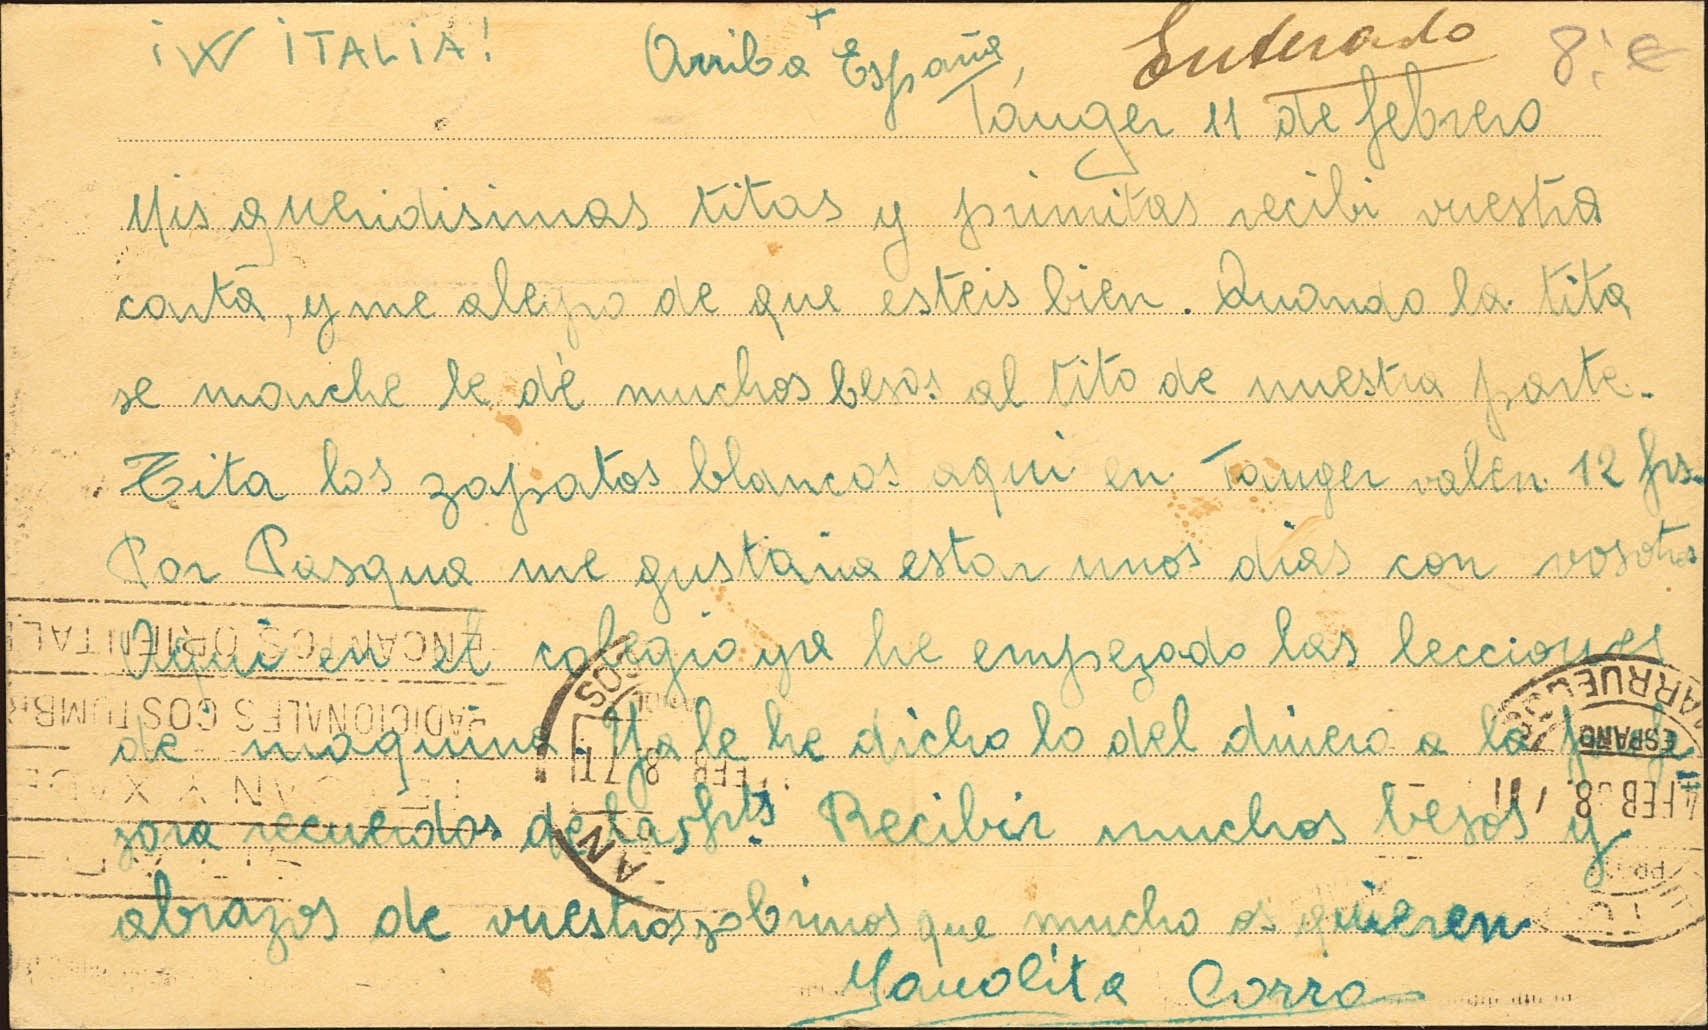 ¡W ITALIA! Arriba España, Enterado
Tánger 11 de febrero
Mis queridisimas titas y primitas recibi vuestra
carta, y me alegro de que esteis bien. Quando la tita
se marche le dé muchos besos al tito de nuestra parte.
Tita los zapatos blancos aqui en Tanger valen 12 frs.
Por Pasqua me gustaria estar unos dias con vosotros
Aqui en el colegio ya he empezado las lecciones
de maquina. Ya le he dicho lo del dinero a la
recuerdos de Recibir muchos besos y
abrazos de vuestros sobrinos que mucho os quieren
Manolita Corro
ENCANTOS ORIENTAL
ADICIONALES COSTUMBR
MARRUECOS
ESPAÑO
FEB 38